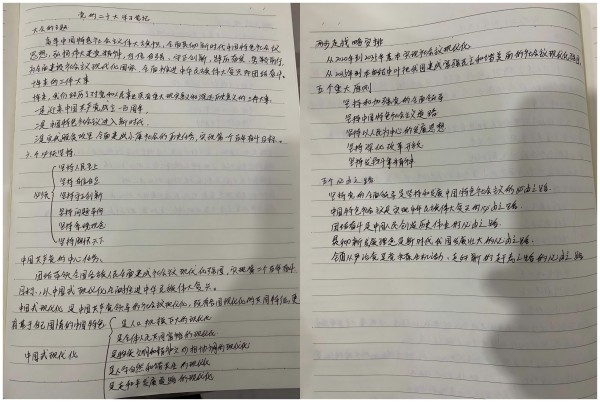 党的二十大学习笔记
大会的主题
高举中国特色社会主义伟大旗帜，全面贯彻新时代中国特色社会主义
思想，弘扬伟大建党精神，自信自强、守正创新，踔厉奋发、勇毅前行，
为全面建设社会主义现代化国家、全面推进中华民族伟大复兴而团结奋斗。
十年来的三件大事
十年来，我们经历了对党和人民事业具有重大现实意义和深远历史意义的三件大事：
一是迎来中国共产党成立一百周年
二是中国特色社会主义进入新时代
三是完成脱贫攻坚、全面建成小康社会的历史任务，实现第一个百年奋斗目标。
六个必须坚持
坚持人民至上
坚持自信自立
必须 坚持守正创新
坚持问题导向
坚持系统观念
坚持胸怀天下
中国共产党的中心任务：
团结带领全国各族人民全面建成社会主义现代化强国、实现第二个百年奋斗
目标，以中国式现代化全面推进中华民族伟大复兴。
中国式现代化是中国共产党领导的社会主义现代化，既有各国现代化的共同特征，更
有基于自己国情的中国特色
是人口规模巨大的现代化
是全体人民共同富裕的现代化
中国式现代化 是物质文明和精神文明相协调的现代化
是人与自然和谐共生的现代化
是走和平发展道路的现代化
两步走战略安排
从2020年到2035年基本实现社会主义现代化
从2035年到本世纪中叶把我国建成富强民主和谐美丽的社会主义现代化强国
五个重大原则
坚持和加强党的全面领导
坚持中国特色社会主义道路
坚持以人民为中心的发展思想
坚持深化改革开放
坚持发扬斗争精神
五个必由之路
坚持党的全面领导是坚持和发展中国特色社会主义的必由之路
中国特色社会主义是实现中华民族伟大复兴的必由之路
团结奋斗是中国人民创造历史伟业的必由之路
贯彻新发展理念是新时代我国发展壮大的必由之路
全面从严治党是党永葆生机活力、走好新的赶考之路的必由之路